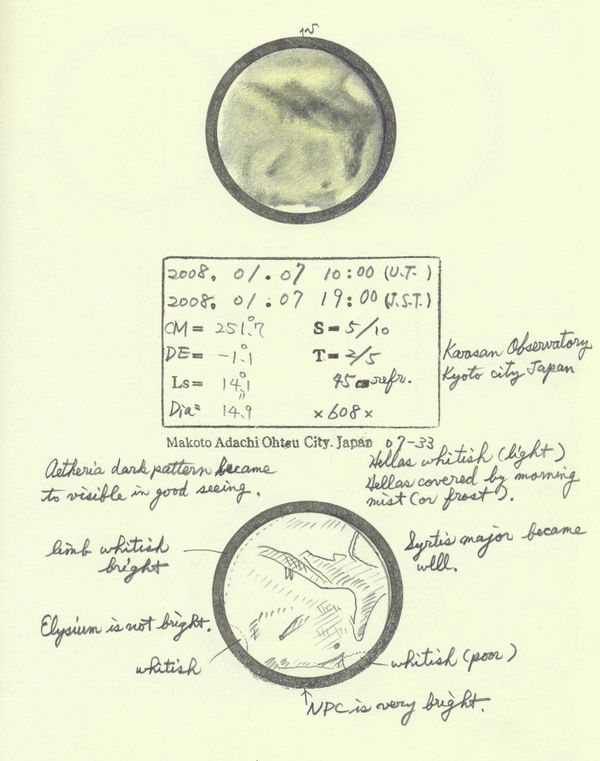 2008, 01.07 10:00 (U.T.)
2008, 01.07 19:00 (J.S.T.)
CM= 251.°7 S= 5/10
DE= -1.°1 T= 2/5
Ls= 14.°1 45cm refr.
Dia= 14."9 ×608×
Karasan Observatory
Kyoto city Japan
Makoto Adachi Ohtsu City. Japan 07-33
Aetheria dark pattern became
to visible in good seeing.
Hellas whitish (light)
Hellas covered by morning
mist (or frost).
limb whitish
bright
Syrtis major became
well.
Elysium is not bright.
whitish
whitish (poor)
NPC is very bright.